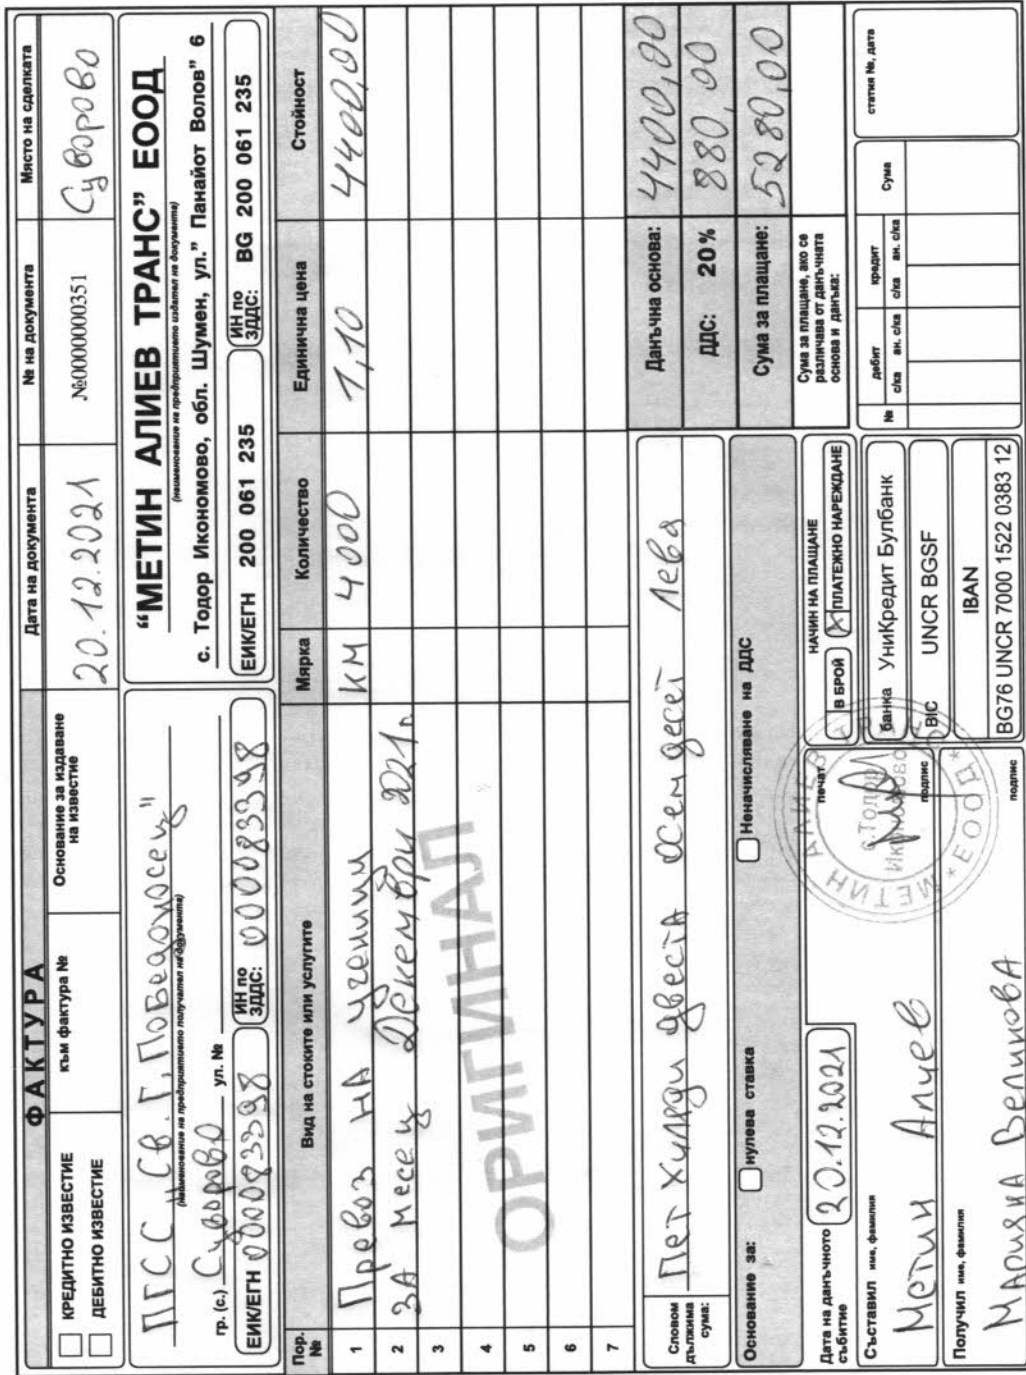 ФАКТУРА
КРЕДИТНО ИЗВЕСТИЕ
ДЕБИТНО ИЗВЕСТИЕ
към фактура №
Основание за издаване на известие
Дата на документа
20.12.2021
№ на документа
№0000000351
Място на сделката
Суворово
ПГСС „Св. Г. Победоносец"
(наименование на предприятието получател на документа)
гр. (с.) Суворово ул. №
ЕИК/ЕГН 000083398
ИН по ЗДДС: 000083398
“МЕТИН АЛИЕВ ТРАНС” ЕООД
(наименование на предприятието издател на документа)
с. Тодор Икономово, обл. Шумен, ул.” Панайот Волов” 6
ЕИК/ЕГН 200 061 235
ИН по ЗДДС: BG 200 061 235
Пор. № Вид на стоките или услугите Мярка Количество Единична цена Стойност
1 Превоз НА ученици КМ 4000 1,10 4400,00
2 ЗА месец Декември 2021г.
3
4
5
6
7
ОРИГИНАЛ
Словом дължима сума: Пет Хиляди двестА осемдесет Лева
Данъчна основа: 4400,00
ДДС: 20% 880,00
Сума за плащане: 5280,00
Основание за: нулева ставка Неначисляване на ДДС
Сума за плащане, ако се различава от данъчната основа и данъка:
Дата на данъчното събитие 20.12.2021
НАЧИН НА ПЛАЩАНЕ
В БРОЙ X ПЛАТЕЖНО НАРЕЖДАНЕ
Съставил име, фамилия
Метин Алиев
печат
подпис
МЕТИН АЛИЕВ
с.Тодор
Икономово
*ЕООД*
банка УниКредит Булбанк
BIC UNCR BGSF
IBAN
BG76 UNCR 7000 1522 0383 12
Получил име, фамилия
МАрияНА Великова
подпис
№ дебит кредит Сума
с/ка ан. с/ка с/ка ан. с/ка
статия №, дата